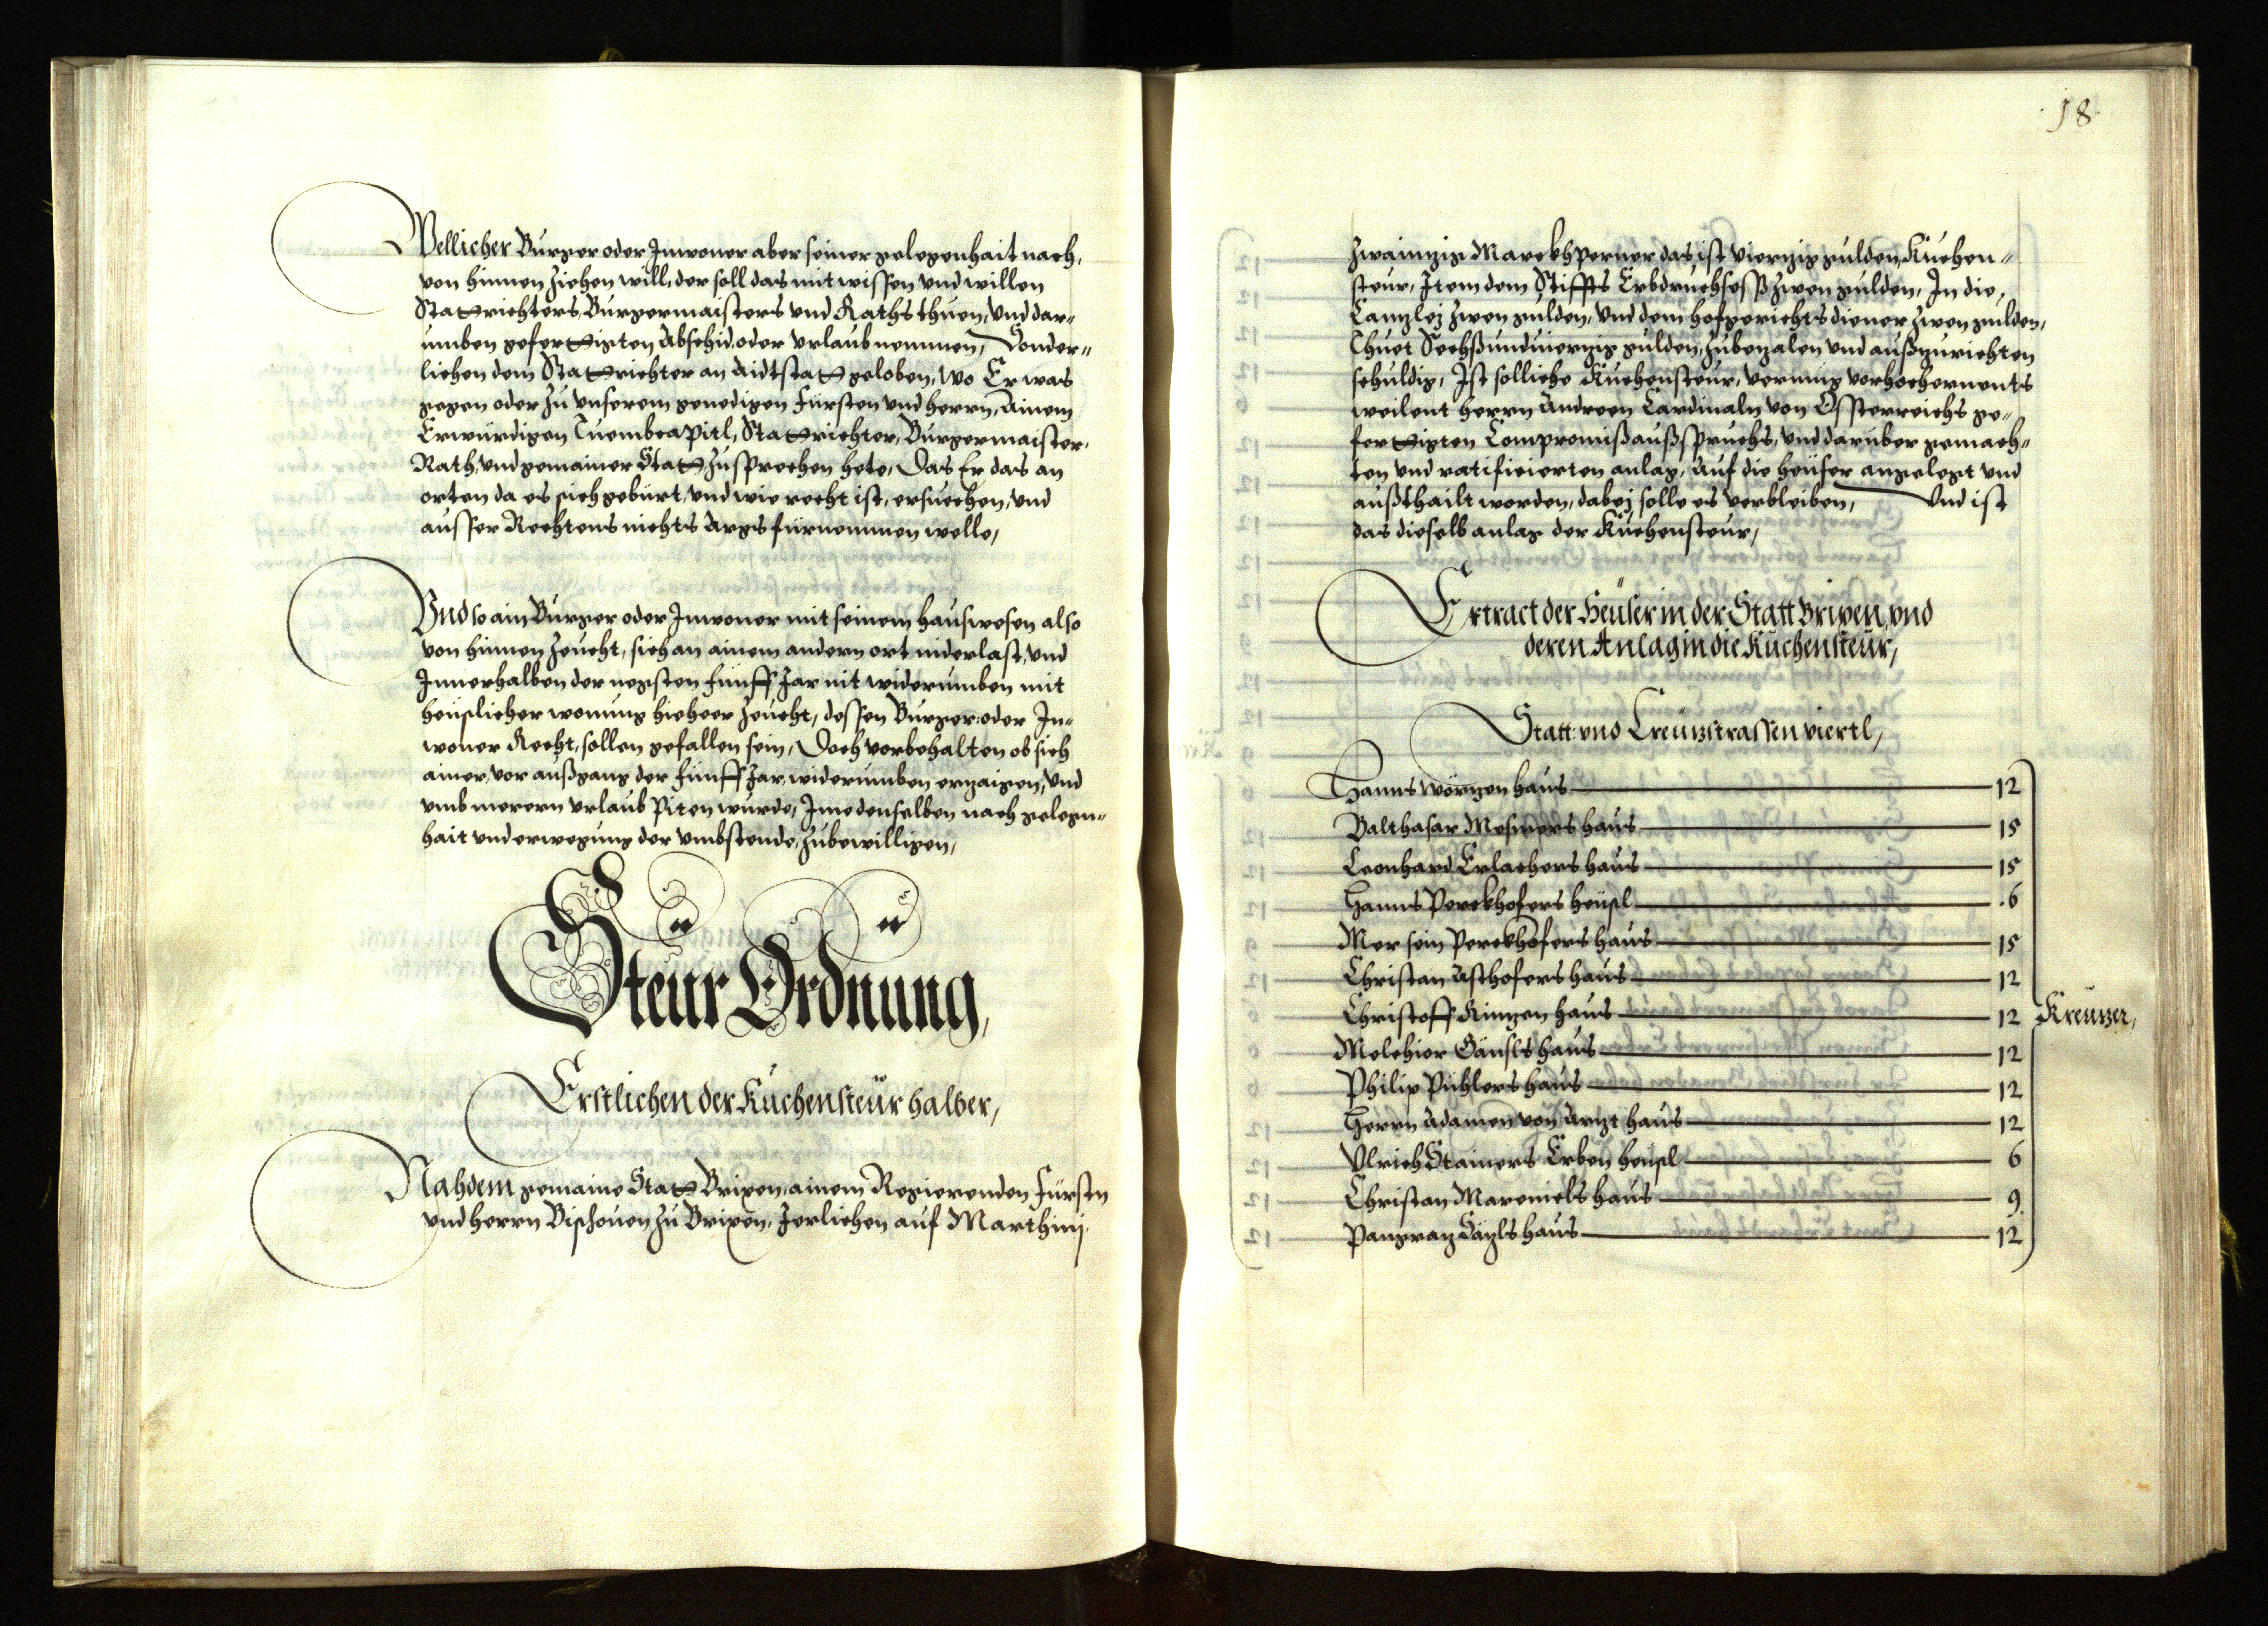 Wellicher Burger oder Inwoner aber seiner gelegenhait nach,
von hinnen ziehen will, der soll das mit wissen vnd willen
Statrichters, Burgermaisters vnd Raths thuen, vnd dar=
umben gefertigten Abschid, oder vrlaub nemmen, Sonder=
lichen dem Statrichter an Aidtstat geloben, wo Er was
gegen oder zu vnserem genedigen Fürsten vnd herrn, Ainem
Erwürdigen Tuembcapitl, Statrichter, Burgermaister,
Rath, vnd gemainer Stat, zusprechen hete, Das Er das an
orten da es sich gebürt, vnd wie recht ist, ersuechen, vnd
ausser Rechtens nichts Args fürnemmen welle,
Vnd so ain Burger oder Inwoner mit seinem hauswesen also
von hinnen zeucht, sich an ainem andern ort niderlast, vnd
Innerhalben der negsten fünff Jar nit widerumben mit
heüslicher wonung hieheer zeucht, dessen Burger: oder In=
woner Recht, sollen gefallen sein, Doch vorbehalten ob sich
ainer, vor außgang der fünff Jar, widerumben erzaigen, vnd
vmb merern vrlaub Piten wurde, Ime denselben nach gelegn=
hait vnd erwegung der vmbstende, zubewilligen,
Steur Ordnung,
Erstlichen der Kuchensteür halber,
Nahdem gemaine Stat Brixen, ainem Regierenden Fürstn
vnd herrn Bischouen zu Brixen, Jerlichen auf Marthinj
18
zwainzig Marckh Perner das ist vierzig gulden, Kuchen=
steur, Item dem Stiffts Erbdruchsess zwen gulden, In die,
Canzlej zwen gulden, vnd dem hofgerichtsdiener zwen gulden,
Thuet Sechßundvierzig gulden, zubezalen vnd außzurichten
schuldig, Ist solliche Kuchensteur, vermig vorhochernents
weilent herrn Andreen Cardinaln von Össterreichs ge=
fertigten Compromiß außspruchs, vnd darüber gemach=
ten vnd ratificierten anlag, Auf die heüser angelegt vnd
außthailt worden, dabej solle es verbleiben, Vnd ist
das dieselb anlag der Kuchensteur,
Extract der Heüser in der Statt Brixen, vnd
deren Anlag in die Kuchensteür,
Statt: vnd Creüzstrassen viertl,
Hanns Wörzen haus 12
Balthasar Mesners haus 15
Leonhard Erlachers haus 15
Hanns Perckhofers heüsl 6
Mer sein Perckhofers haus 15
Christan Asthofers haus 12
Christoff Ringen haus 12
Kreüzer,
Melchior Gänsls haus 12
Philip Pühlers haus 12
Herrn Adamen von Arzt haus 12
Vlrich Stainers Erben heüsl 6
Christan Marenicls haus 9
Pangraz Säzls haus 12